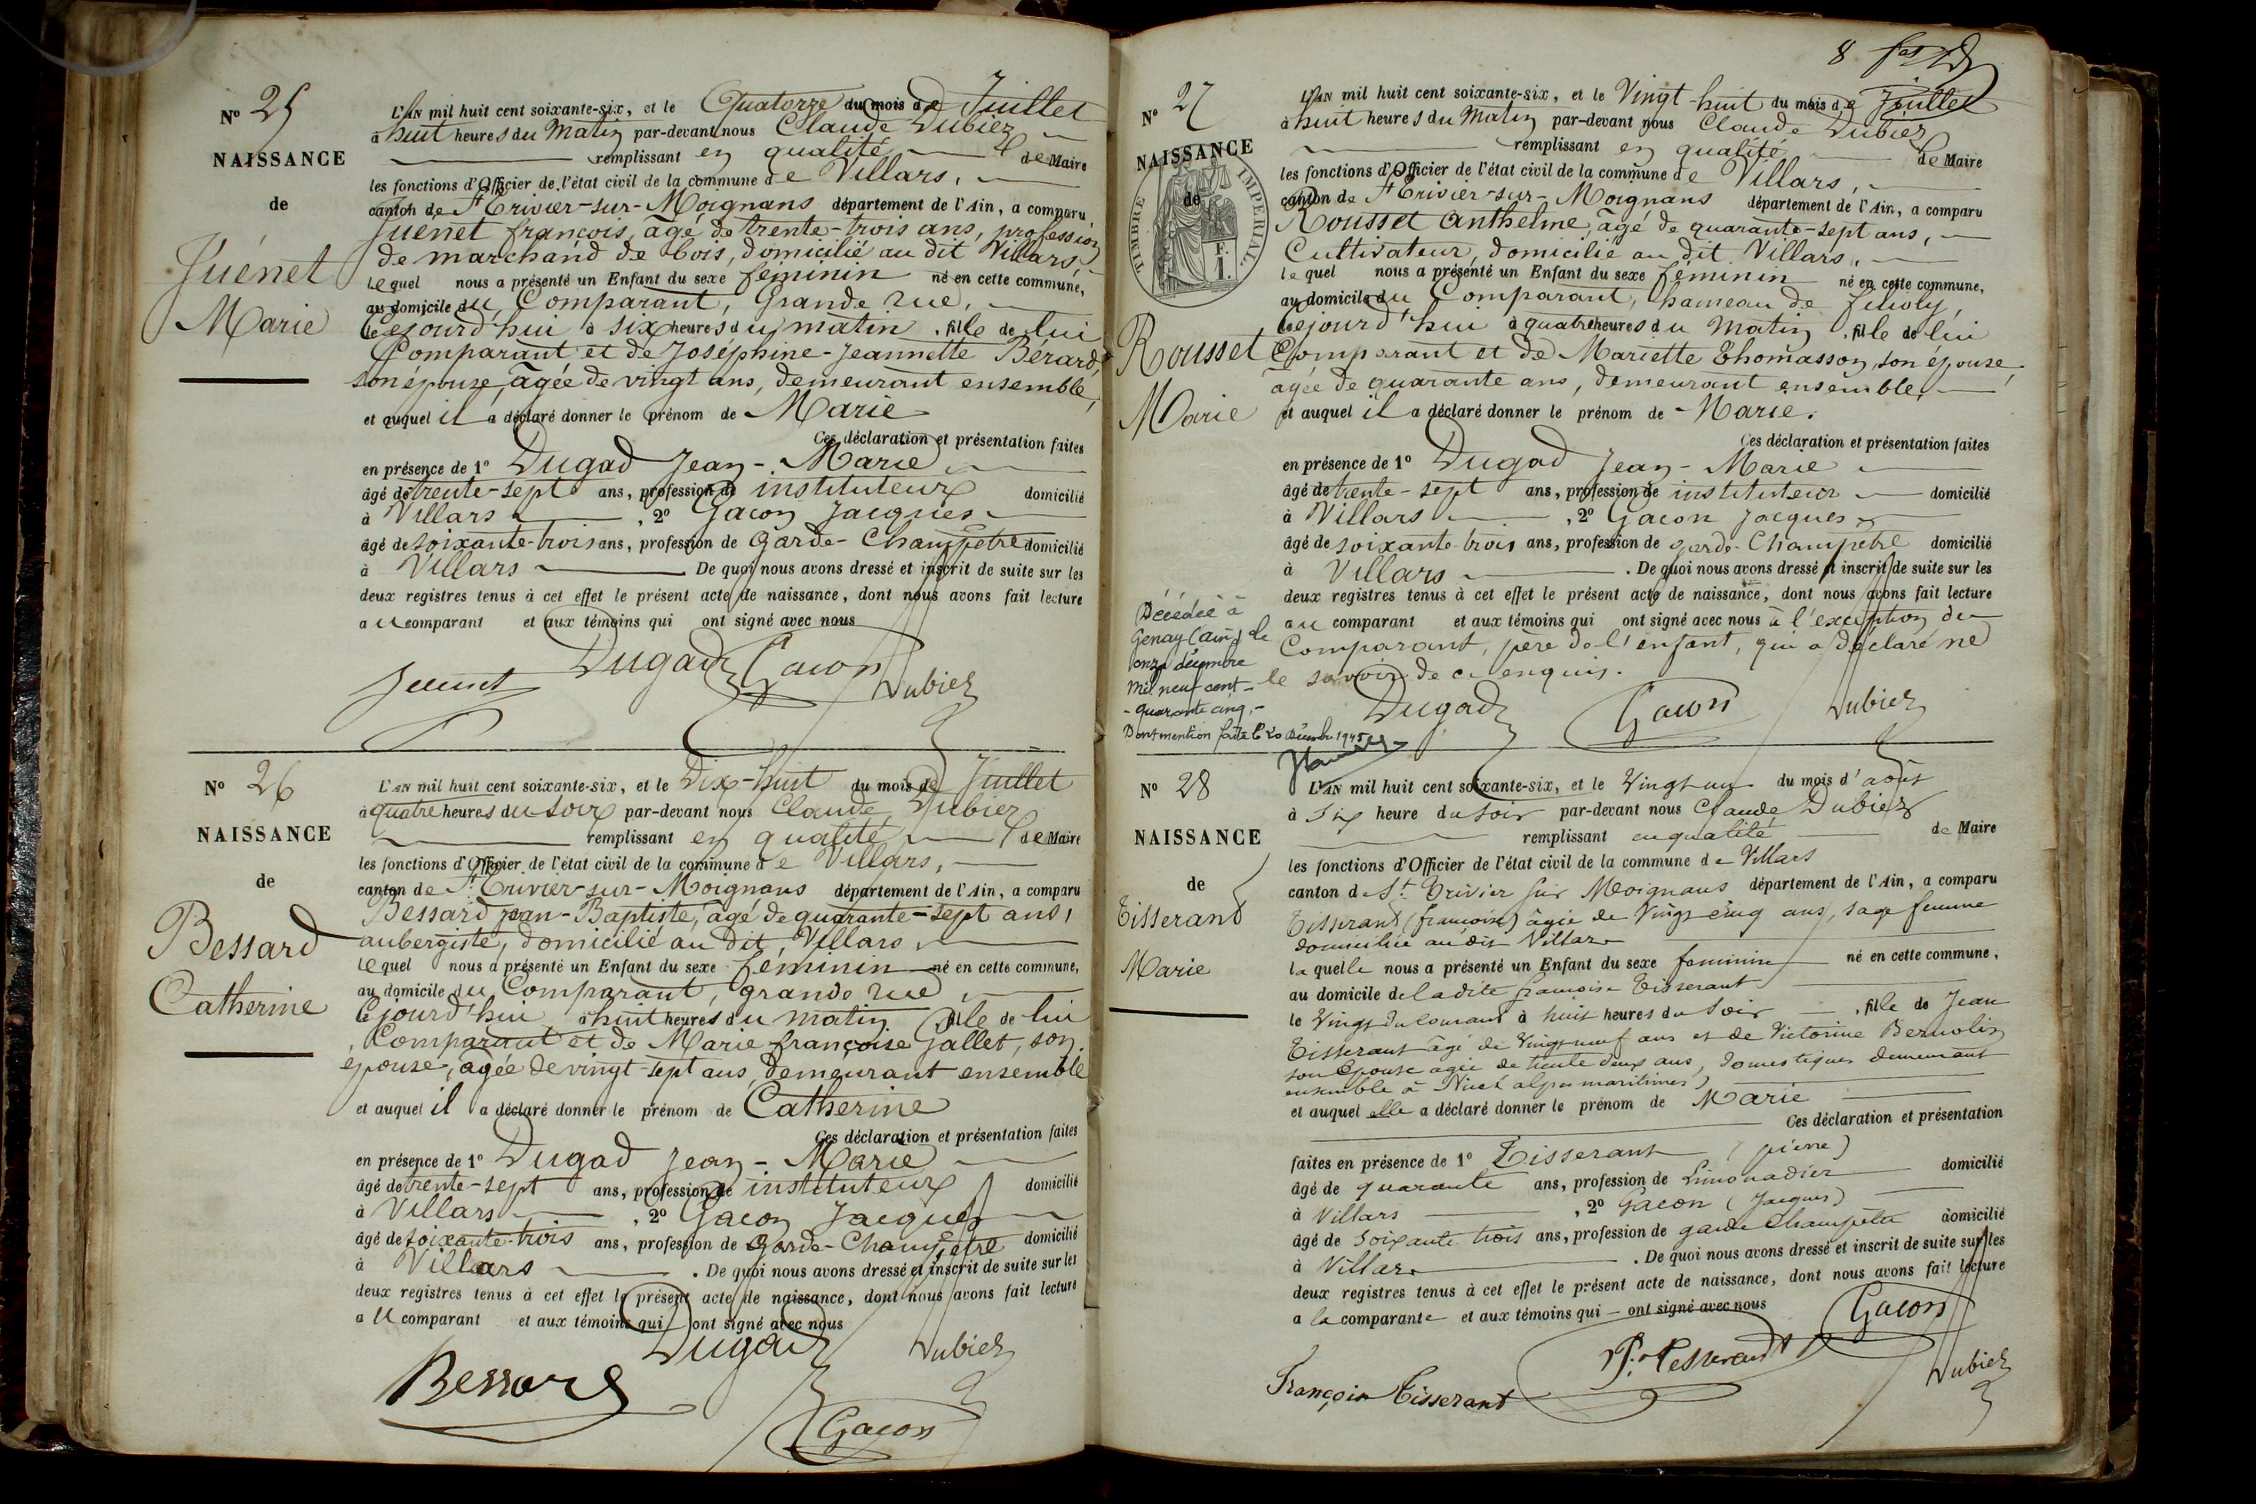 Nº 25
NAISSANCE
de
Juénet
Marie
L'AN mil huit cent soixante-six, et le Quatorze du mois de Juillet
à huit heures du Matin par-devant nous Claude Dubiez
remplissant en qualité de Maire
les fonctions d'Officier de l'état civil de la commune de Villars,
canton de St Trivier-sur-Moignans département de l'Ain, a comparu
Juénet françois, âgé de trente-trois ans, profession
de marchand de bois, domicilié au dit Villars,
lequel nous a présenté un Enfant du sexe féminin né en cette commune,
au domicile du Comparant, Grande rue,
cejourd'hui à six heures du matin, fille de lui
Comparant et de Joséphine-Jeannette Bérard,
son épouse, âgée de vingt ans, demeurant ensemble,
et auquel il a déclaré donner le prénom de Marie
Ces déclaration et présentation faites
en présence de 1º Dugad Jean-Marie
âgé de trente-sept ans, profession de instituteur domicilié
à Villars, 2º Gacon Jacques
âgé de soixante-trois ans, profession de Garde-Champêtre domicilié
à Villars De quoi nous avons dressé et inscrit de suite sur les
deux registres tenus à cet effet le présent acte de naissance, dont nous avons fait lecture
au comparant et aux témoins qui ont signé avec nous
Juenet Dugad Gacon Dubiez
Nº 26
NAISSANCE
de
Bessard
Catherine
L'AN mil huit cent soixante-six, et le Dix-huit du mois de Juillet
à quatre heures du soir par-devant nous Claude Dubiez
remplissant en qualité de Maire
les fonctions d'Officier de l'état civil de la commune de Villars,
canton de St Trivier-sur-Moignans département de l'Ain, a comparu
Bessard Jean-Baptiste, âgé de quarante-sept ans,
aubergiste, domicilié au dit Villars,
lequel nous a présenté un Enfant du sexe féminin né en cette commune,
au domicile du Comparant, grande rue,
cejourd'hui à huit heures du matin, fille de lui
Comparant et de Marie françoise Gallet, son
épouse, âgée de vingt-sept ans, demeurant ensemble
et auquel il a déclaré donner le prénom de Catherine
Ces déclaration et présentation faites
en présence de 1º Dugad Jean-Marie
âgé de trente-sept ans, profession de instituteur domicilié
à Villars, 2º Gacon Jacques
âgé de soixante-trois ans, profession de Garde-Champêtre domicilié
à Villars. De quoi nous avons dressé et inscrit de suite sur les
deux registres tenus à cet effet le présent acte de naissance, dont nous avons fait lecture
au comparant et aux témoins qui ont signé avec nous
Bessard Dugad Dubiez
Gacon
8
Nº 27
NAISSANCE
de
TIMBRE IMPÉRIAL
F.
1.
Rousset
Marie
Décédée à
Genay (Ain) le
onze décembre
mil neuf cent
quarante cinq.
Dont mention faite le 20 Décembre 1945
L'AN mil huit cent soixante-six, et le Vingt-huit du mois de Juillet
à huit heures du Matin par-devant nous Claude Dubiez
remplissant en qualité de Maire
les fonctions d'Officier de l'état civil de la commune de Villars,
canton de St Trivier-sur-Moignans département de l'Ain, a comparu
Rousset Anthelme, âgé de quarante-sept ans,
Cultivateur, domicilié au dit Villars,
lequel nous a présenté un Enfant du sexe féminin né en cette commune,
au domicile du Comparant, hameau de
cejourd'hui à quatre heures du Matin, fille de lui
Comparant et de Mariette Thomasson, son épouse,
âgée de quarante ans, demeurant ensemble,
et auquel il a déclaré donner le prénom de Marie.
Ces déclaration et présentation faites
en présence de 1º Dugad Jean-Marie
âgé de trente-sept ans, profession de instituteur domicilié
à Villars, 2º Gacon Jacques
âgé de soixante-trois ans, profession de garde-Champêtre domicilié
à Villars. De quoi nous avons dressé et inscrit de suite sur les
deux registres tenus à cet effet le présent acte de naissance, dont nous avons fait lecture
au comparant et aux témoins qui ont signé avec nous à l'exception du
Comparant, père de l'enfant, qui a déclaré ne
le savoir de ce enquis.
Dugad Gacon Dubiez
Nº 28
NAISSANCE
de
Tisserant
Marie
L'AN mil huit cent soixante-six, et le Vingt un du mois d'août
à Six heure du soir par-devant nous Claude Dubiez
remplissant en qualité de Maire
les fonctions d'Officier de l'état civil de la commune de Villars
canton de St. Trivier sur Moignans département de l'Ain, a comparu
Tisserant (françoise) âgée de Vingt cinq ans, sage femme
domiciliée au dit Villars
laquelle nous a présenté un Enfant du sexe feminin né en cette commune,
au domicile de ladite françoise Tisserant
le Vingt du courant à huit heures du Soir, fille de Jean
Tisserant âgé de Vingt neuf ans et de Victorine
son Epouse agée de trente deux ans, domestiques demeurant
ensemble à Nice (alpes maritimes)
et auquel elle a déclaré donner le prénom de Marie
Ces déclaration et présentation
faites en présence de 1º Tisserant (pierre)
âgé de quarante ans, profession de Limonadier domicilié
à Villars, 2º Gacon (Jacques)
âgé de Soixante trois ans, profession de garde champêtre domicilié
à Villars. De quoi nous avons dressé et inscrit de suite sur les
deux registres tenus à cet effet le présent acte de naissance, dont nous avons fait lecture
a la comparante et aux témoins qui ont signé avec nous
Gacon
Françoise Tisserant P. Tisserant Dubiez